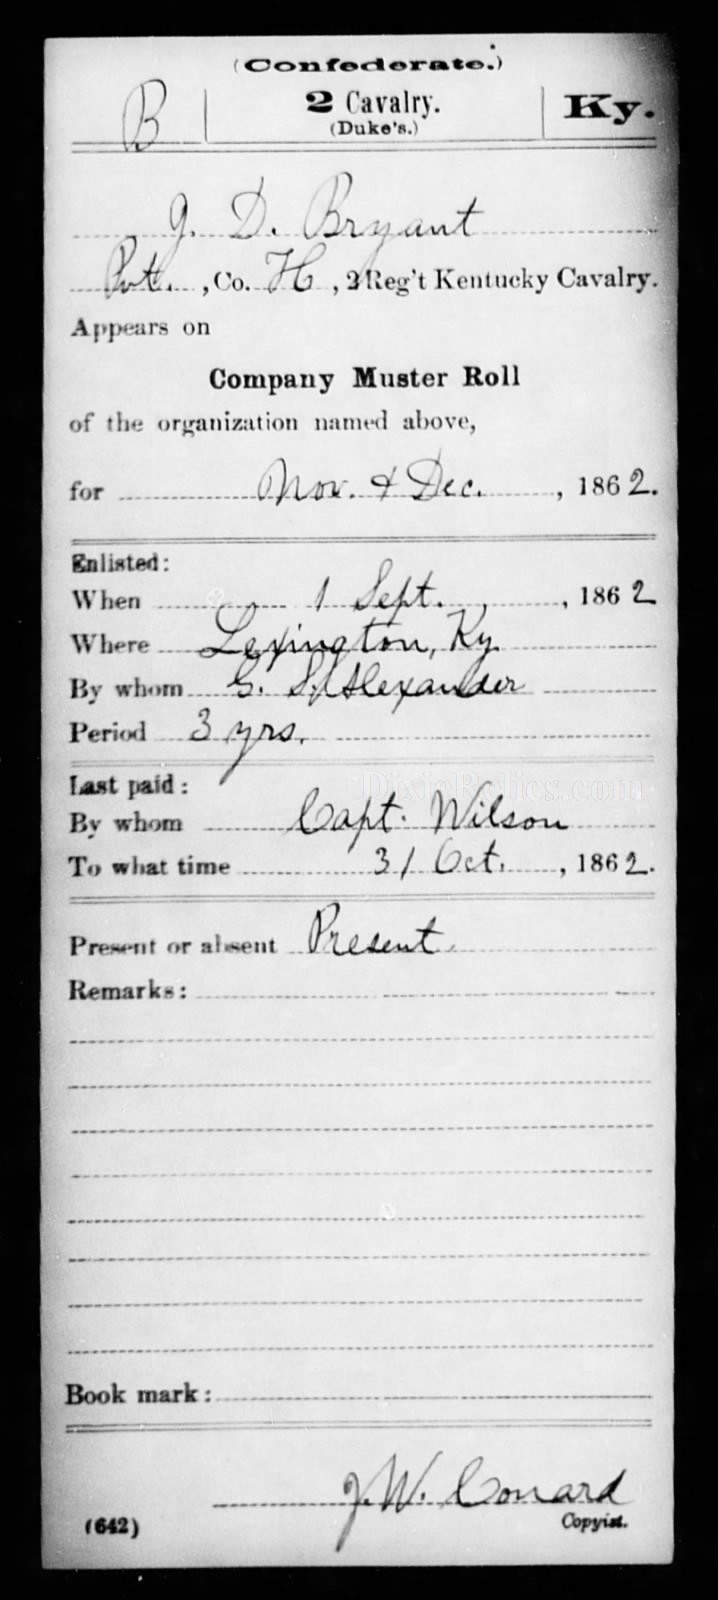 (Confederate.)
B 2 Cavalry. Ky.
(Duke's.)
J. D. Bryant
Pvt., Co. H, 2 Reg't Kentucky Cavalry.
Appears on
Company Muster Roll
of the organization named above,
for Nov. & Dec., 1862.
Enlisted:
When 1 Sept., 1862
Where Lexington, Ky.
By whom G. S. Alexander
Period 3 yrs.
DixieRelics.com
Last paid:
By whom Capt. Wilson
To what time 31 Oct., 1862.
Present or absent Present.
Remarks:
Book mark:
J. W. Conard
(642) Copyist.